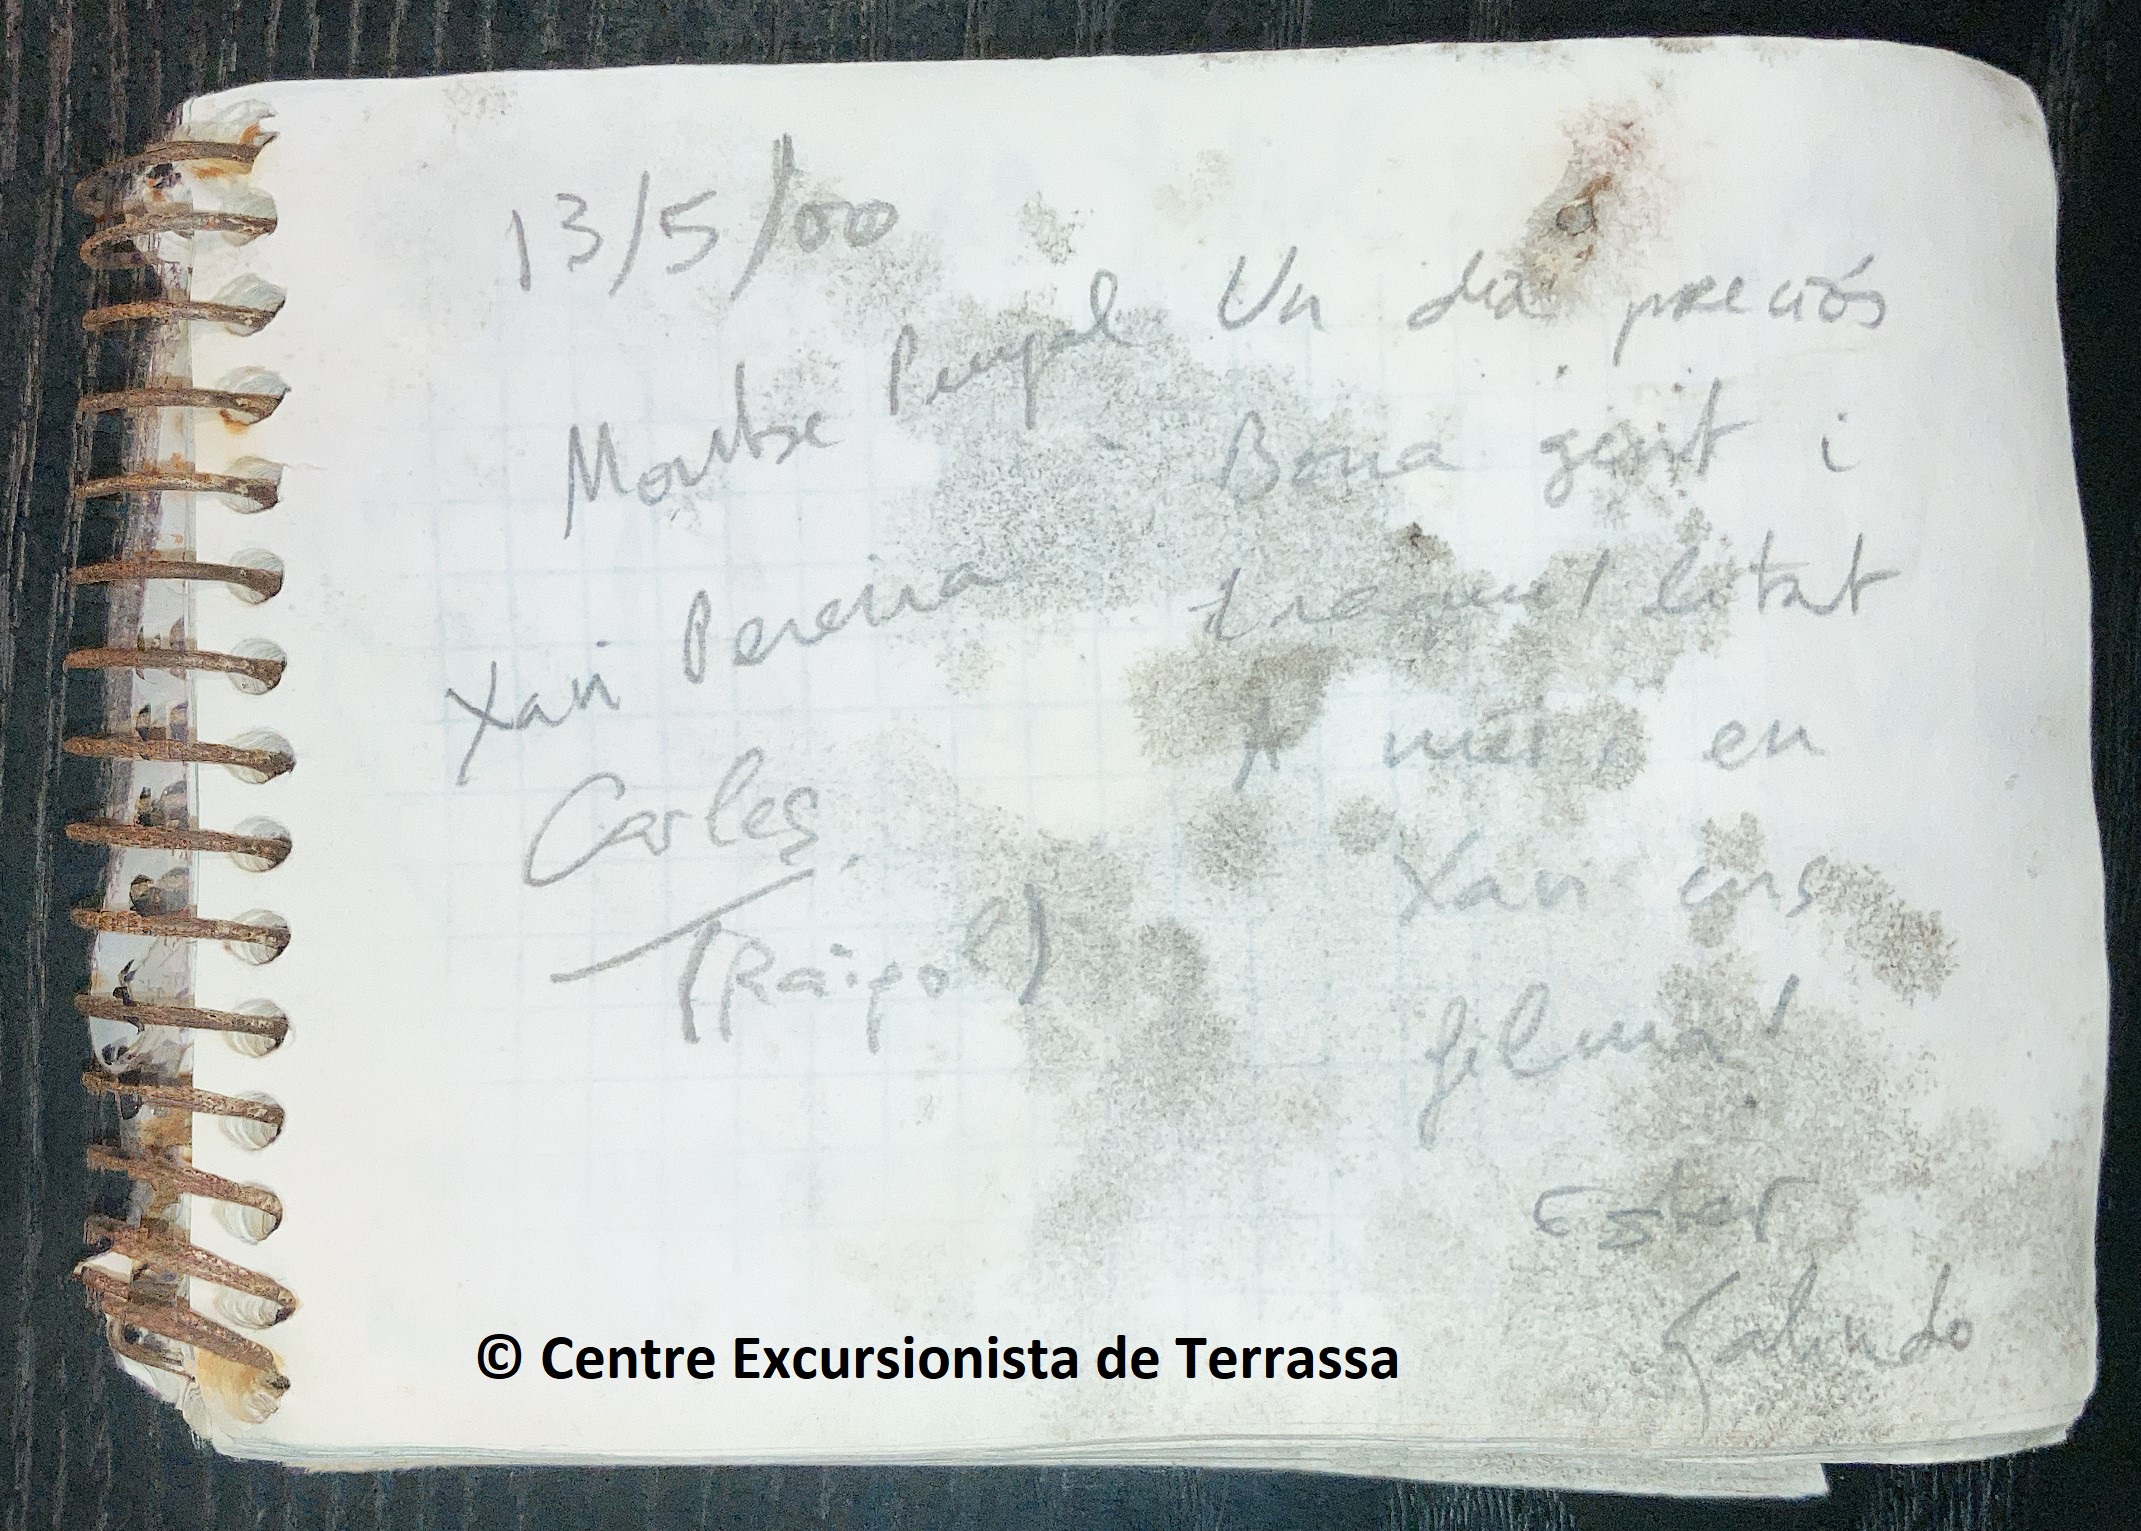 13/5/00
Montse
Xavi Pereira
Carles
(Raïgol)
Un dia preciós
Bona gent i
tranquilitat
A més, en
Xavi ens
filma!
Ester
Galindo
© Centre Excursionista de Terrassa